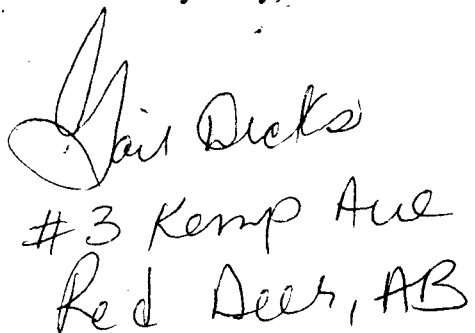 Gail Dicks
#3 Kemp Ave
Red Deer, AB